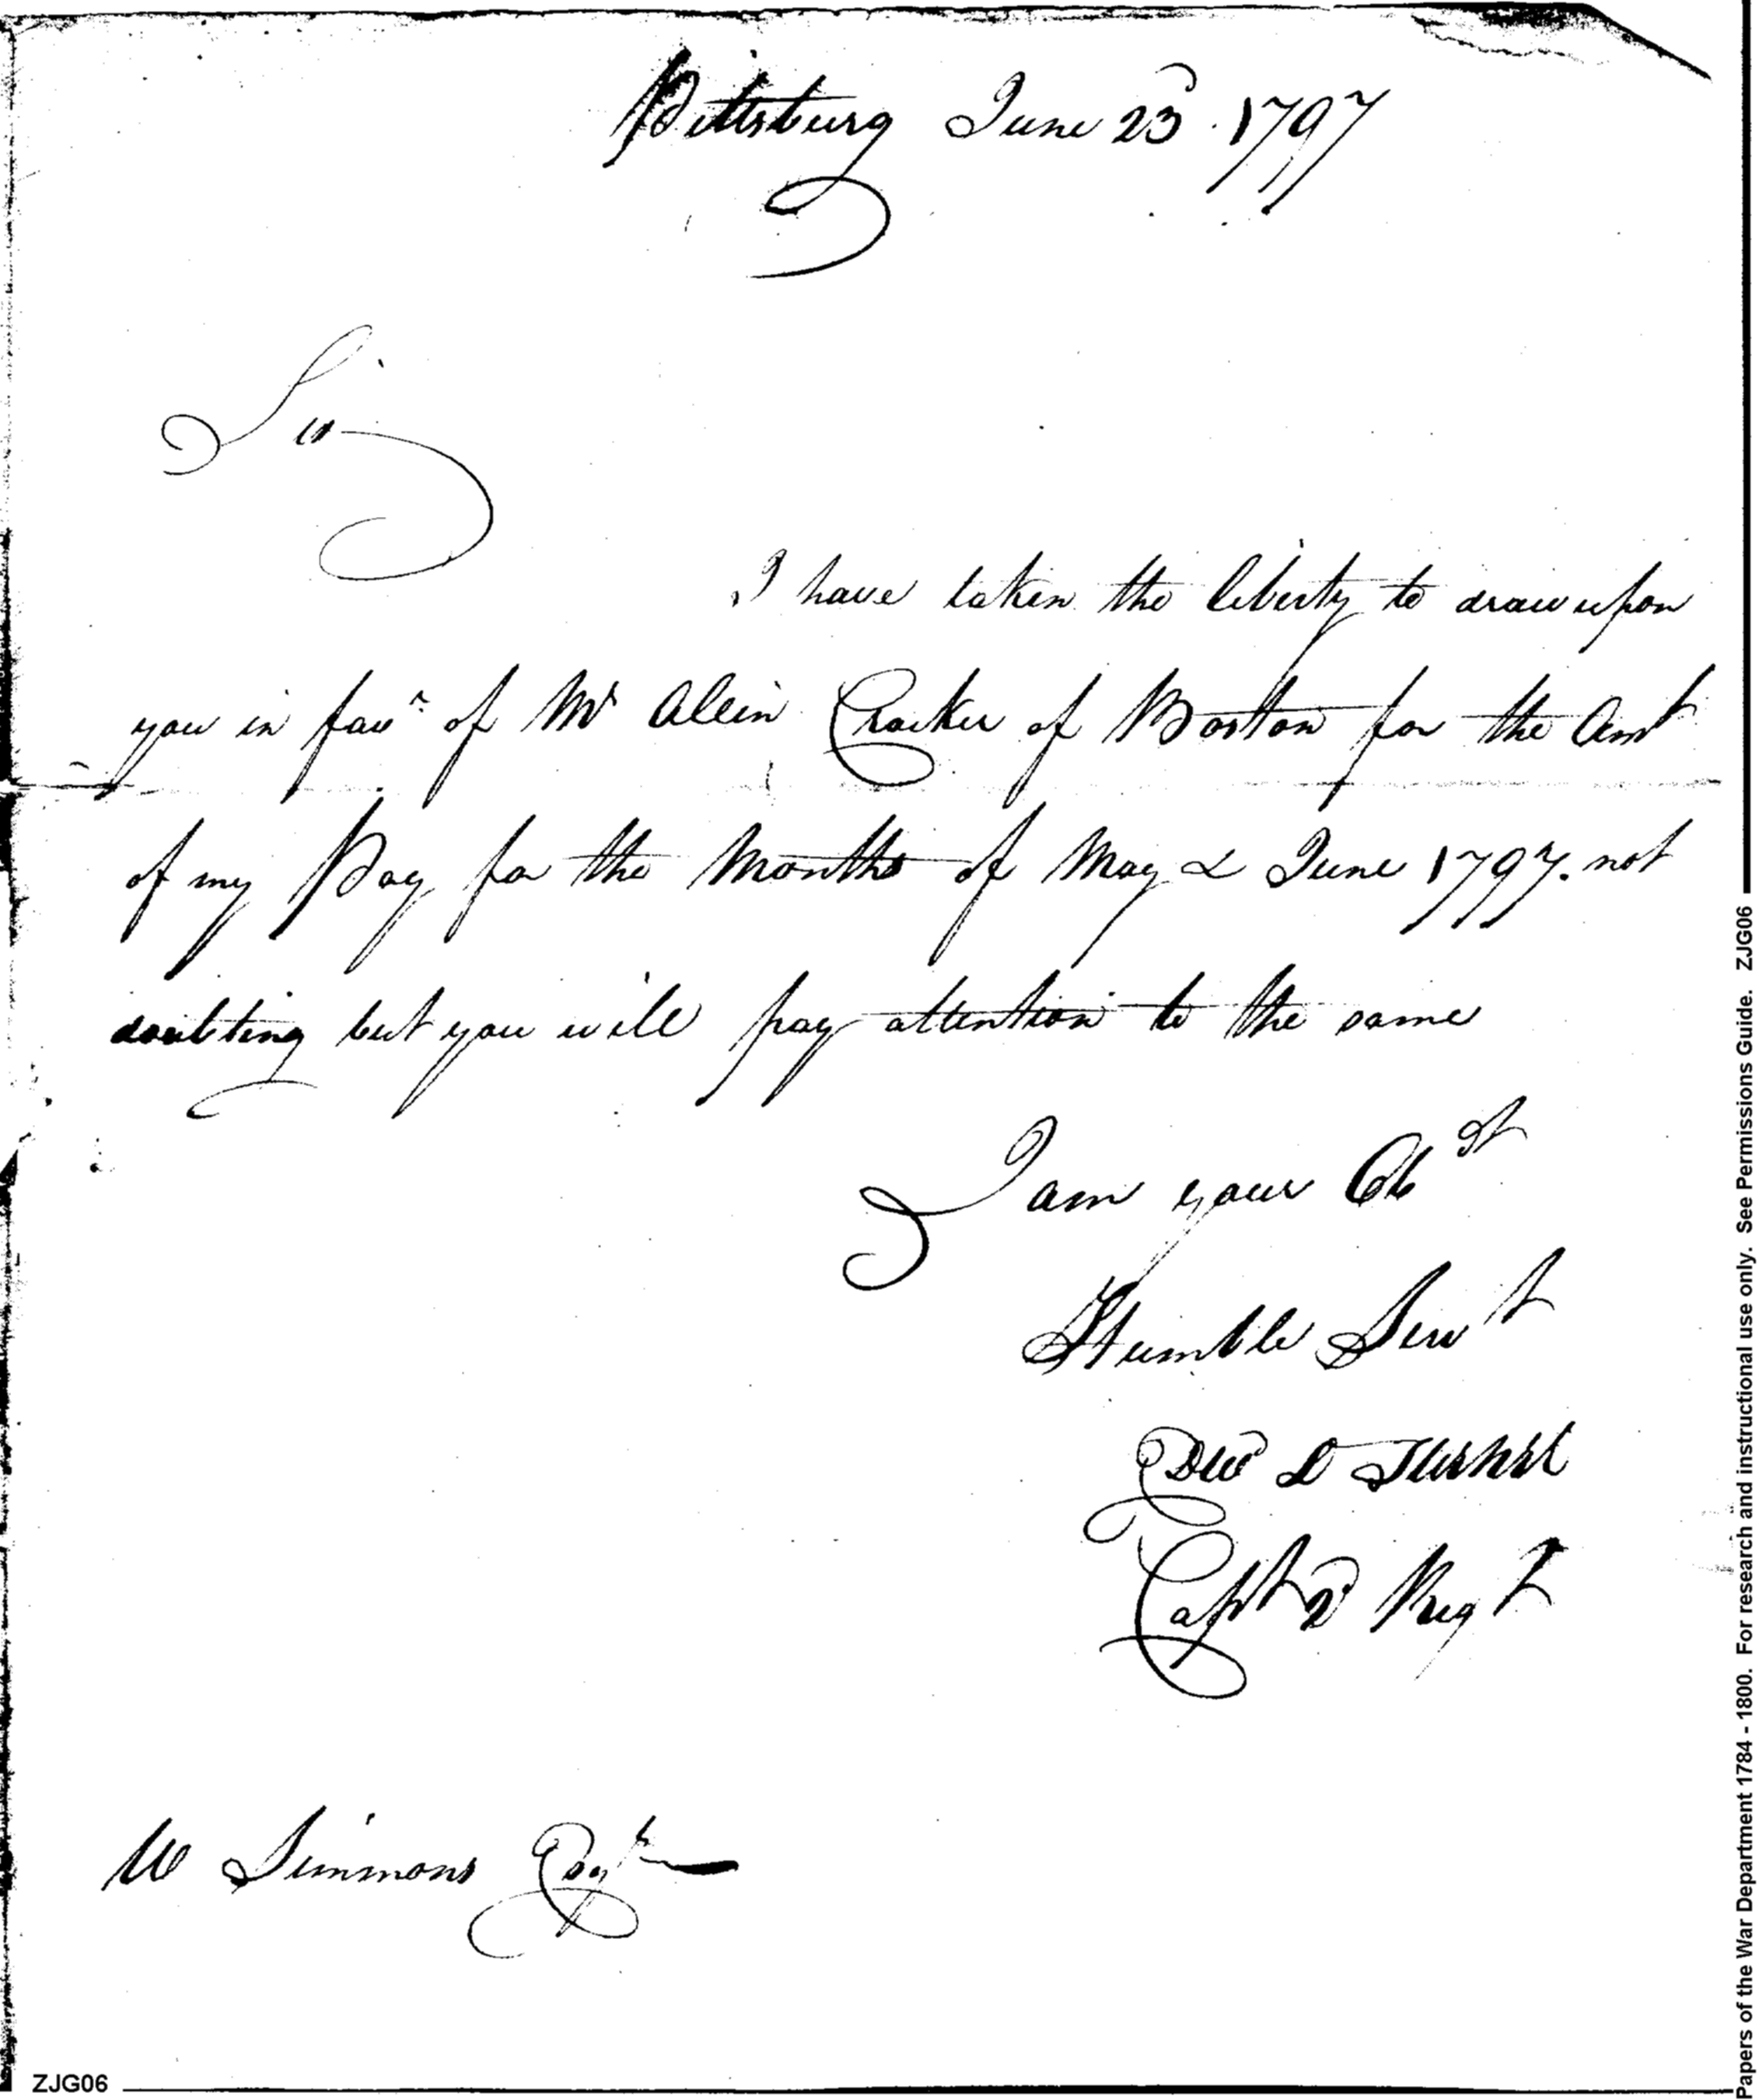 Pittsburg June 23d 1797
Sir
I have taken the liberty to draw upon
you in favr of Mr Allin Crocker of Boston for the Amt
of my Pay for the Months of May & June 1797. not
doubting but you will pay attention to the same
I am your Obst
Humble Servt
Edw D Turner
Capt 2d Regt
W Simmons Esqr
ZJG06
Papers of the War Department 1784 - 1800. For research and instructional use only. See Permissions Guide. ZJG06